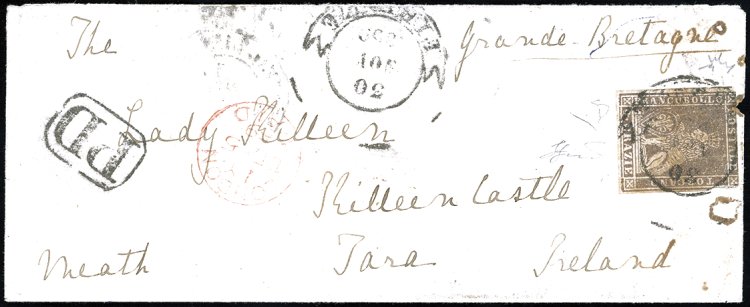 The Grande-Bretagne
Lady Killeen
Killeen Castle
Meath Tara Ireland
PD
FRANCOBOLLO
TOSCANO